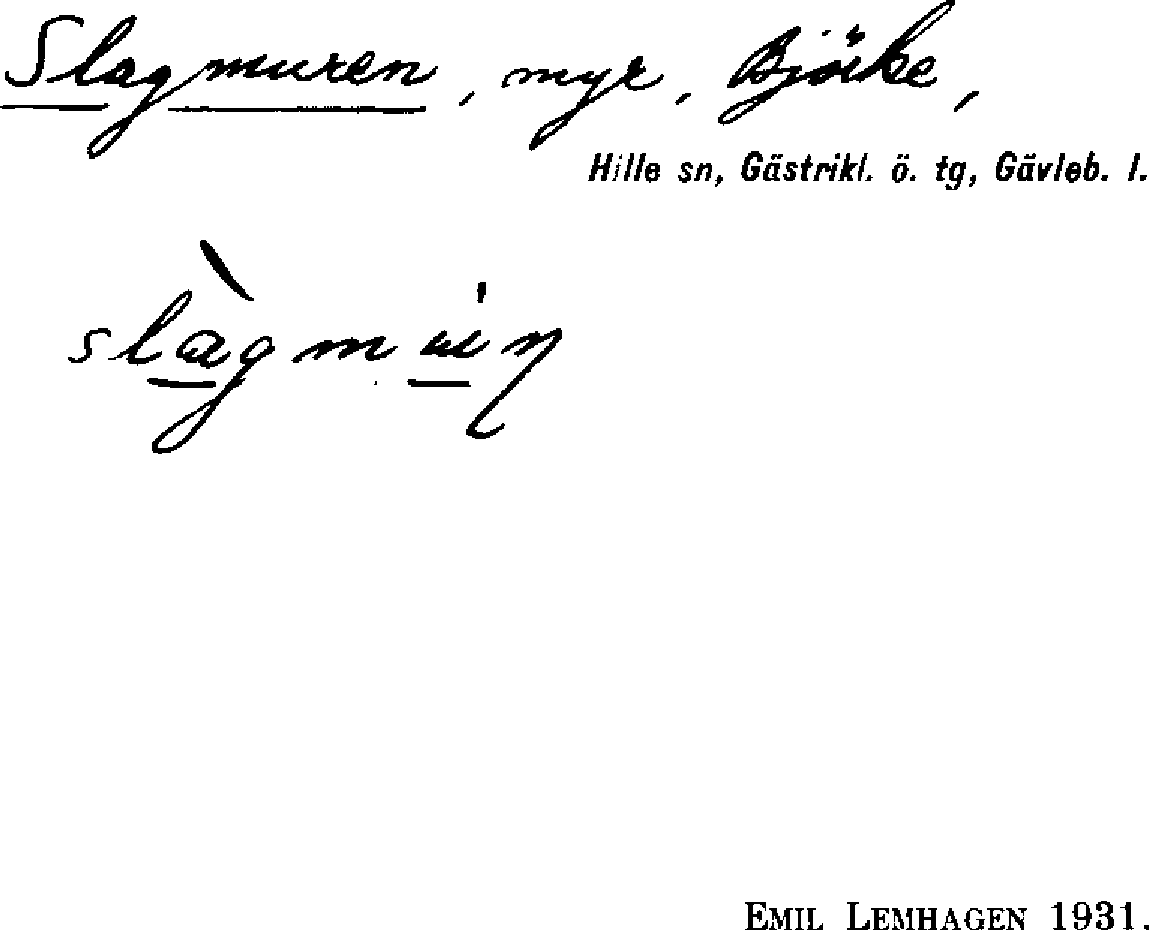 Slagmuren, myr, Björke,
Hille sn, Gästrikl. ö. tg, Gävleb. l.
EMIL LEMHAGEN 1931.